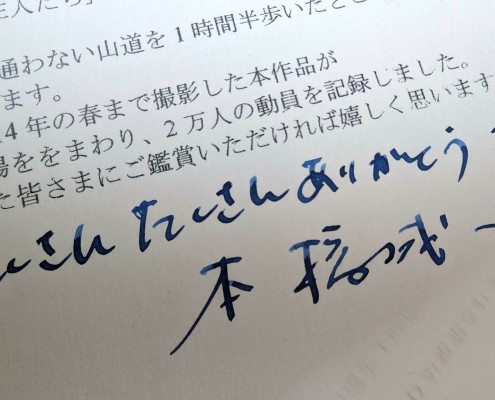 主人たち」
通わない山道を1時間半歩いたとこ
ます。
4年の春まで撮影した本作品が
場ををまわり、2万人の動員を記録しました。
た皆さまにご鑑賞いただければ嬉しく思います
くさん たくさん ありがとう
本橋成一